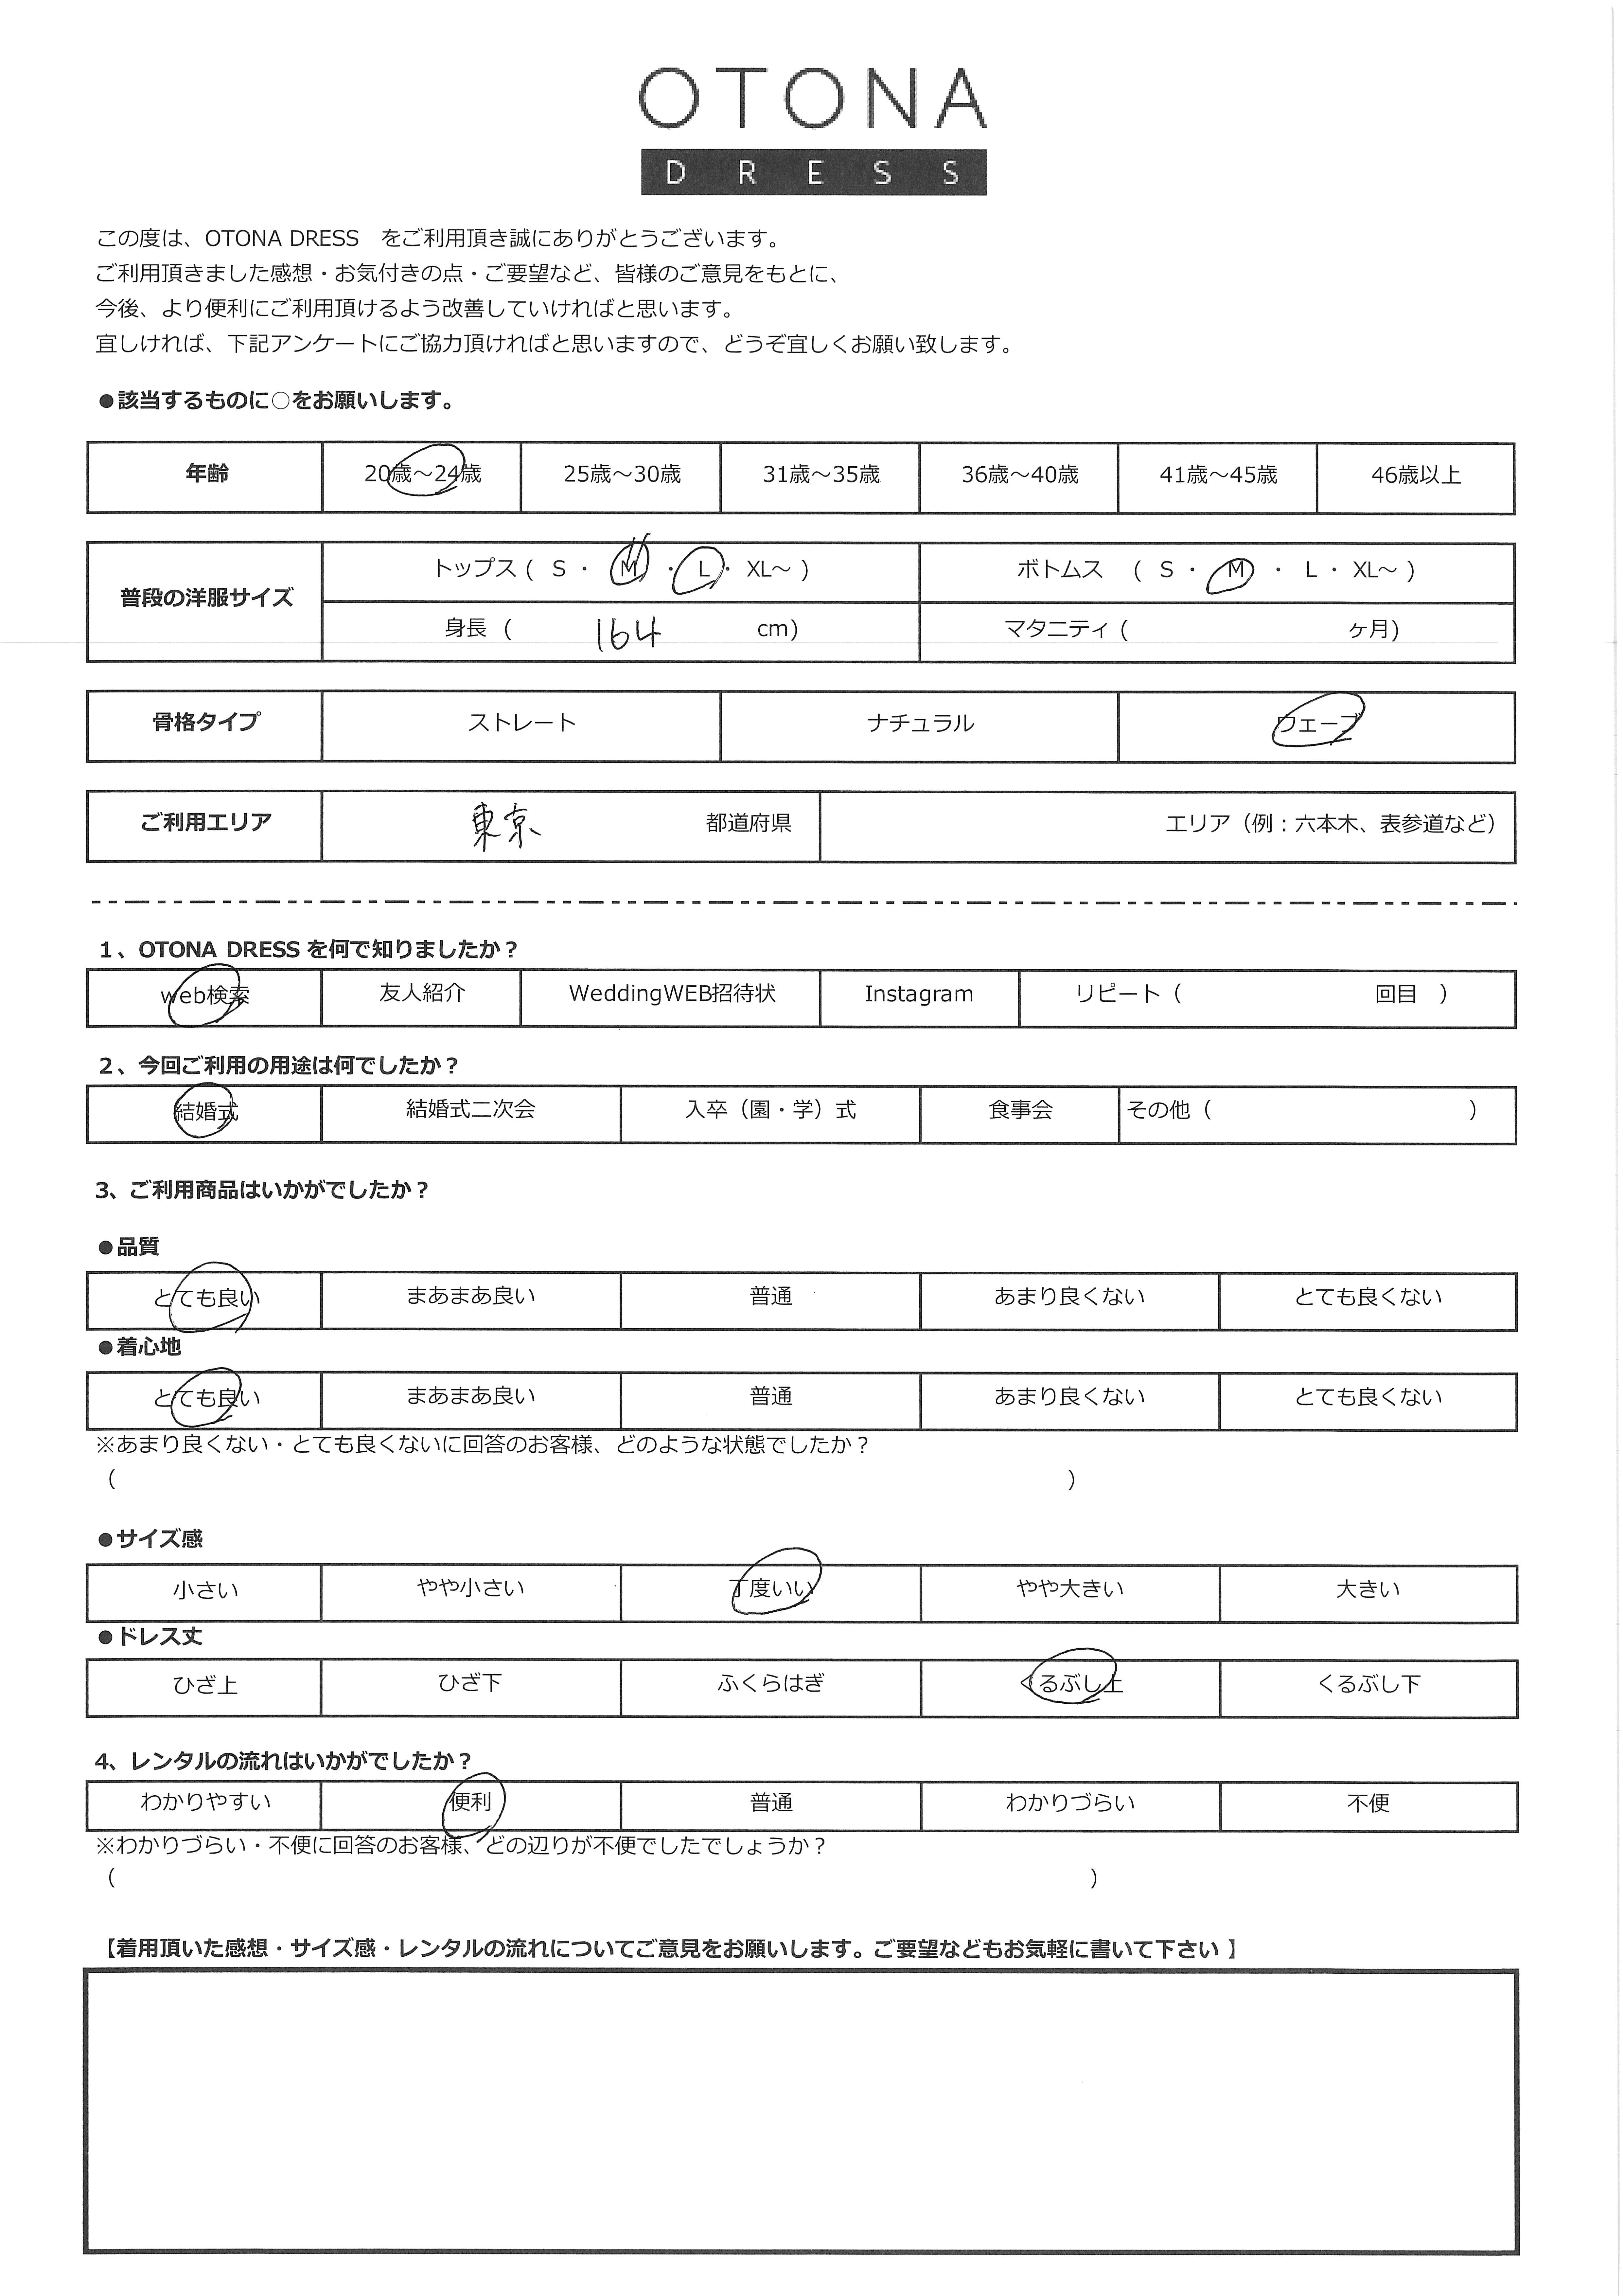 OTONA
DRESS
この度は、OTONA DRESS　をご利用頂き誠にありがとうございます。
ご利用頂きました感想・お気付きの点・ご要望など、皆様のご意見をもとに、
今後、より便利にご利用頂けるよう改善していければと思います。
宜しければ、下記アンケートにご協力頂ければと思いますので、どうぞ宜しくお願い致します。
●該当するものに○をお願いします。
年齢 20歳～24歳 25歳～30歳 31歳～35歳 36歳～40歳 41歳～45歳 46歳以上
普段の洋服サイズ トップス ( S ・ M ・ L ・ XL～ ) ボトムス ( S ・ M ・ L ・ XL～ )
身長 ( 164 cm) マタニティ ( ヶ月)
骨格タイプ ストレート ナチュラル ウェーブ
ご利用エリア 東京 都道府県 エリア（例：六本木、表参道など）
1、OTONA DRESS を何で知りましたか？
web検索 友人紹介 WeddingWEB招待状 Instagram リピート（ 回目 ）
2、今回ご利用の用途は何でしたか？
結婚式 結婚式二次会 入卒（園・学）式 食事会 その他（ ）
3、ご利用商品はいかがでしたか？
●品質
とても良い まあまあ良い 普通 あまり良くない とても良くない
●着心地
とても良い まあまあ良い 普通 あまり良くない とても良くない
※あまり良くない・とても良くないに回答のお客様、どのような状態でしたか？
（ ）
●サイズ感
小さい やや小さい 丁度いい やや大きい 大きい
●ドレス丈
ひざ上 ひざ下 ふくらはぎ くるぶし上 くるぶし下
4、レンタルの流れはいかがでしたか？
わかりやすい 便利 普通 わかりづらい 不便
※わかりづらい・不便に回答のお客様、どの辺りが不便でしたでしょうか？
（ ）
【着用頂いた感想・サイズ感・レンタルの流れについてご意見をお願いします。ご要望などもお気軽に書いて下さい 】